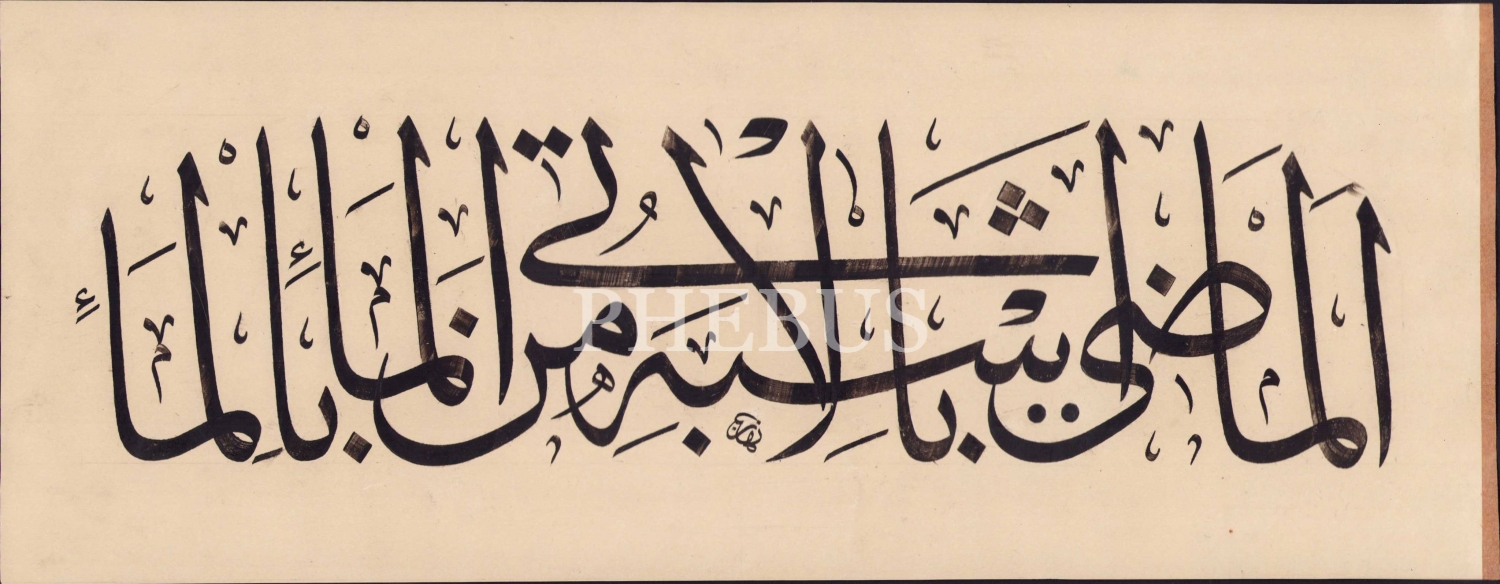 الماضي أشبه بالآتي من الماء بالماء
PHEBUS